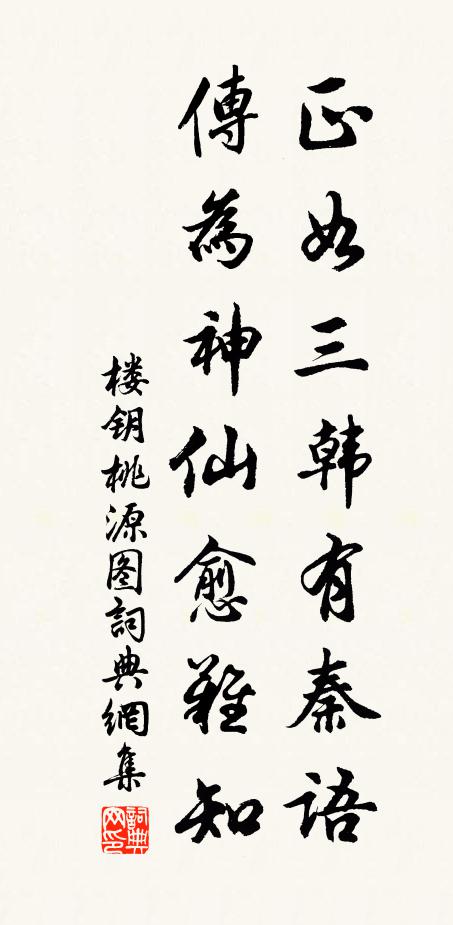 正如三韩有秦語
傳為神仙愈難知
楼钥桃源图詞典網集
詞典网印